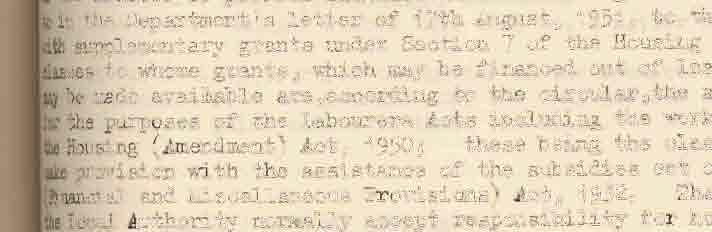 in the Department's letter of 17th August, 195
with supplementary grants under Section 7 of the Housing
classes to whome grants, which may be financed out of
may be made available are,according to the circular,the
for the purposes of the Labourers Acts including the work
the Housing (Amendment) Act, 1950; these being the clas
make provision with the assistance of the subsidies set o
(Financial and Miscellaneous Provisions) Act, 1932. The
the Local Authority normally accept responsibility for